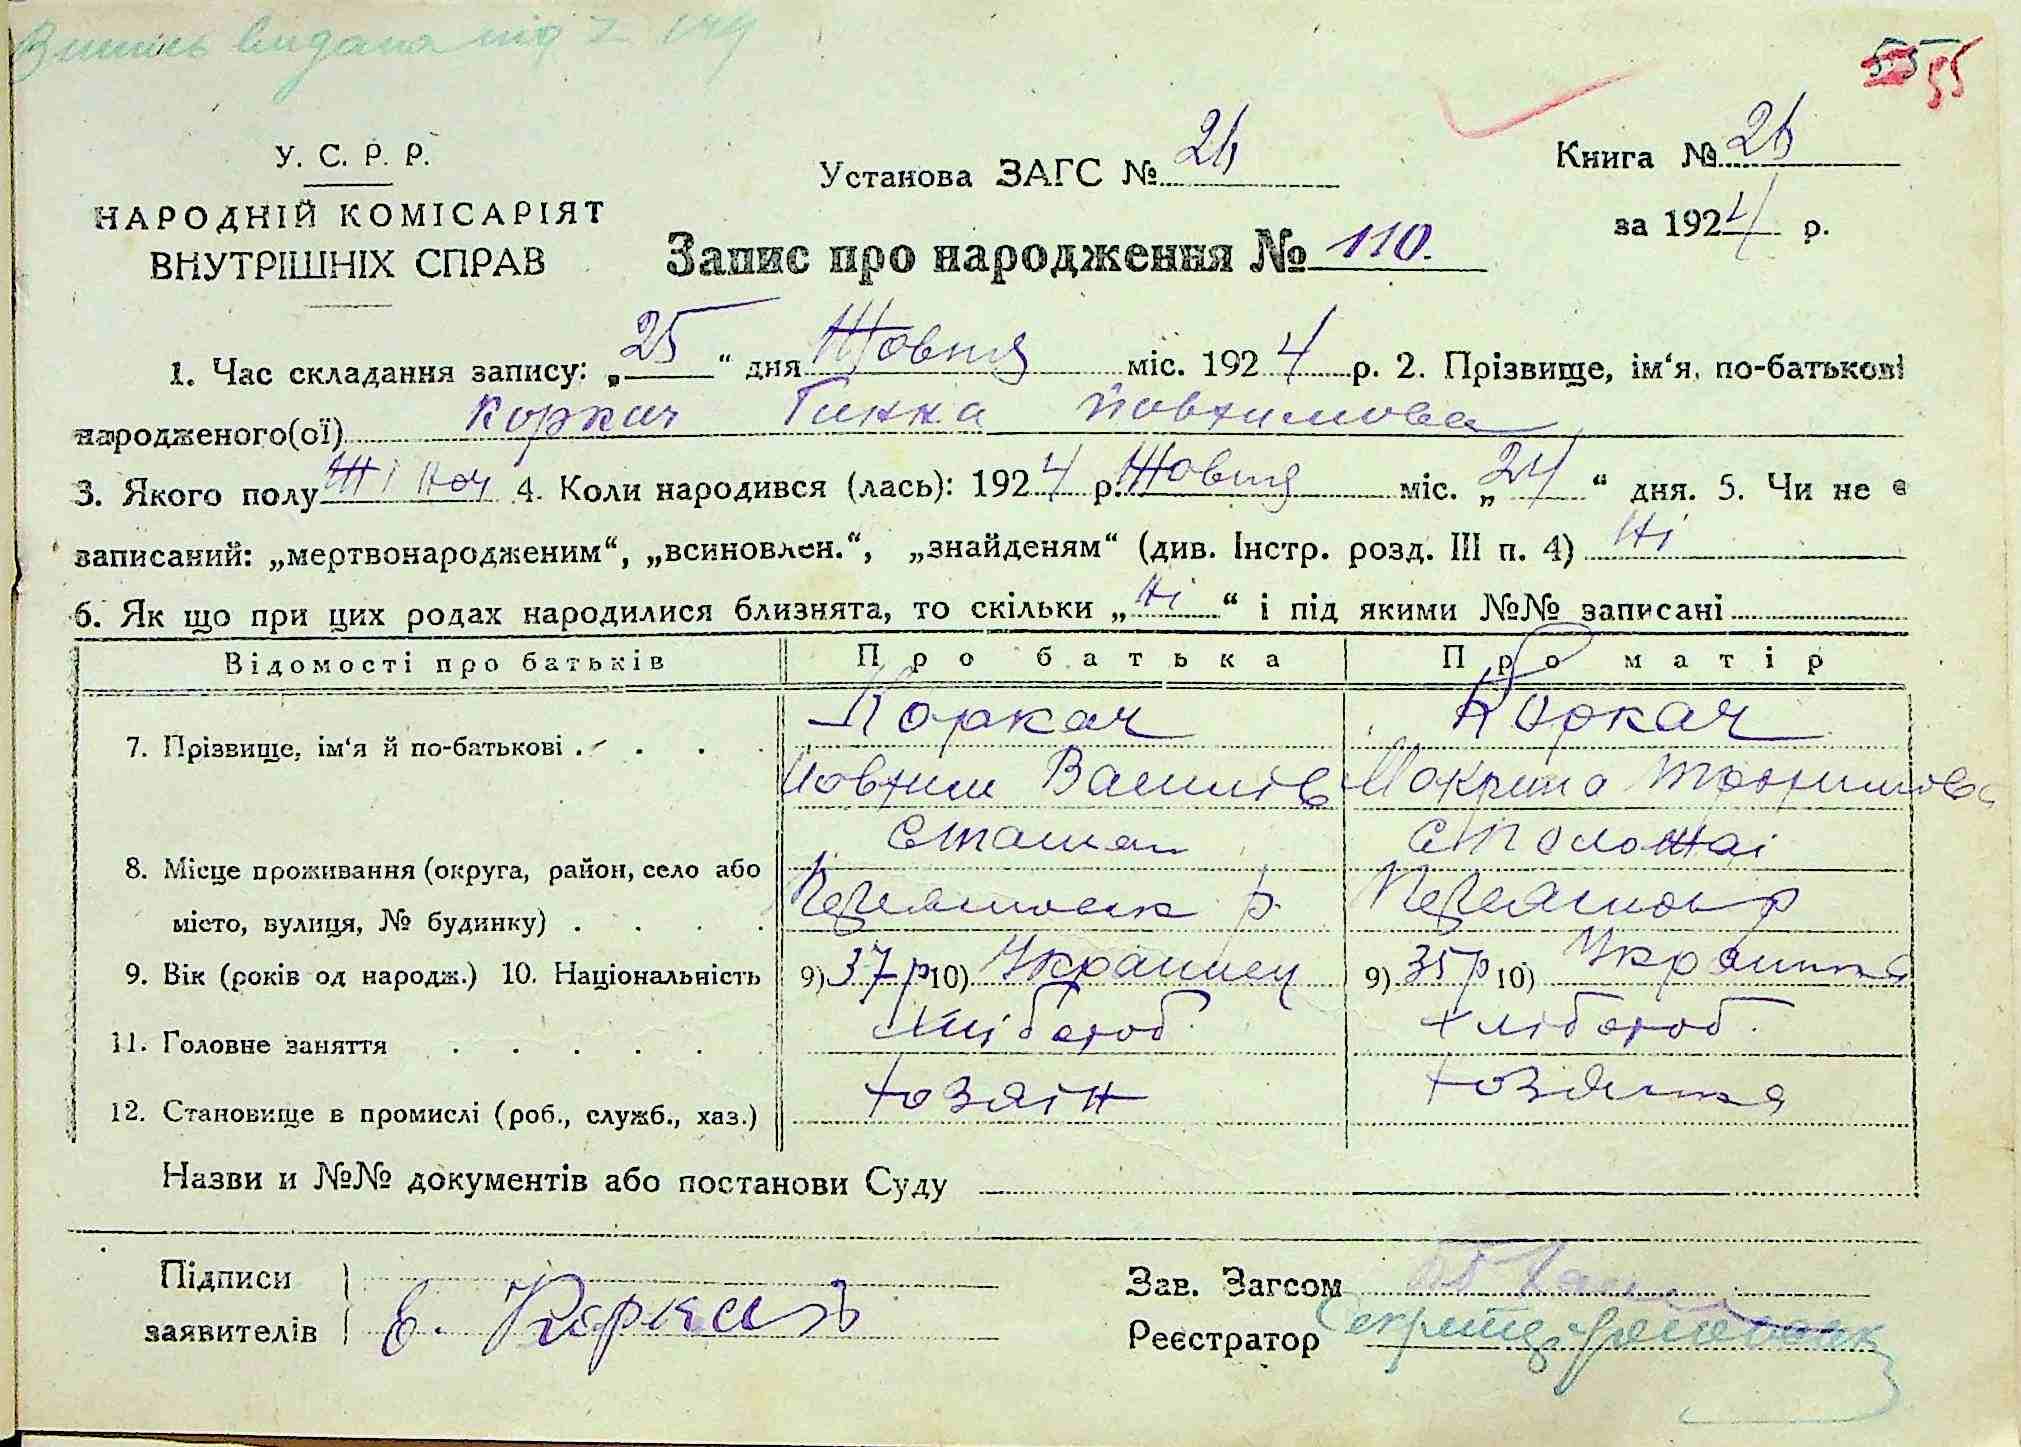 Випись видана під
55 55
У. С. Р. Р.
НАРОДНІЙ КОМІСАРІЯТ
ВНУТРІШНІХ СПРАВ
Установа ЗАГС № 26
Книга № 26
за 1924 р.
Запис про народження № 110.
1. Час складання запису: „25“ дня Жовтня міс. 1924 р. 2. Прізвище, ім‘я, по-батькові
народженого(ої) Коркач Ганна Йовхимова
3. Якого полу Жіноч 4. Коли народився (лась): 1924 р. Жовтня міс. „24“ дня. 5. Чи не є
записаний: „мертвонародженим“, „всиновлен.“, „знайденям“ (див. Інстр. розд. III п. 4) Ні
6. Як що при цих родах народилися близнята, то скільки „Ні“ і під якими №№ записані
Відомості про батьків Про батька Про матір
7. Прізвище, ім‘я й по-батькові . . . . Коркач Коркач
Йовхим Василів Мокрина
8. Місце проживання (округа, район, село або
місто, вулиця, № будинку) . . . .
9. Вік (років од народж.) 10. Національність 9) 37 р 10) Украинец 9) 35 р 10) Украинка
11. Головне заняття . . . . . . Хлібороб Хлібороб.
12. Становище в промислі (роб., служб., хаз.) Хозяін Хозяика
Назви и №№ документів або постанови Суду
Підписи
заявителів Е. Коркач
Зав. Загсом
Реєстратор